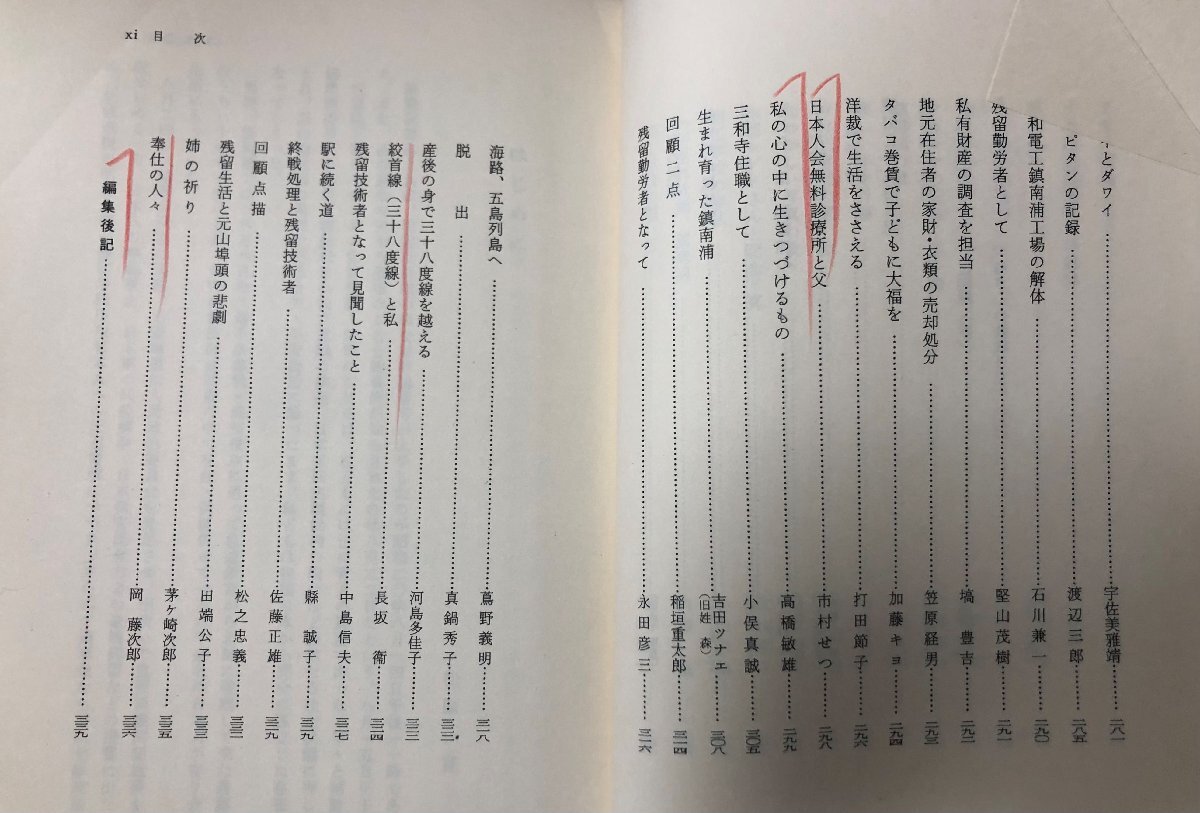 とダワイ……宇佐美雅靖……二八一
ピタンの記録……渡辺三郎……二八五
和電工鎮南浦工場の解体……石川兼一……二九〇
残留勤労者として……堅山茂樹……二九一
私有財産の調査を担当……塙豊吉……二九二
地元在住者の家財・衣類の売却処分……笠原経男……二九三
タバコ巻賃で子どもに大福を……加藤キヨ……二九四
洋裁で生活をささえる……打田節子……二九六
日本人会無料診療所と父……市村せつ……二九八
私の心の中に生きつづけるもの……高橋敏雄……二九九
三和寺住職として……小俣真誠……三〇五
生まれ育った鎮南浦……吉田ツナエ(旧姓 森)……三〇八
回顧二点……稲垣重太郎……三一四
残留勤労者となって……永田彦三……三一六
xi 目 次
海路、五島列島へ……蔦野義明……三一八
脱 出……真鍋秀子……三二二
産後の身で三十八度線を越える……河島多佳子……三二三
絞首線(三十八度線)と私……長坂 衛……三二四
残留技術者となって見聞したこと……中島信夫……三二七
駅に続く道……縣 誠子……三二九
終戦処理と残留技術者……佐藤正雄……三二九
回顧点描……松之忠義……三三二
残留生活と元山埠頭の悲劇……田端公子……三三三
姉の祈り……茅ヶ崎次郎……三三五
奉仕の人々……岡 藤次郎……三三六
編集後記……三三九